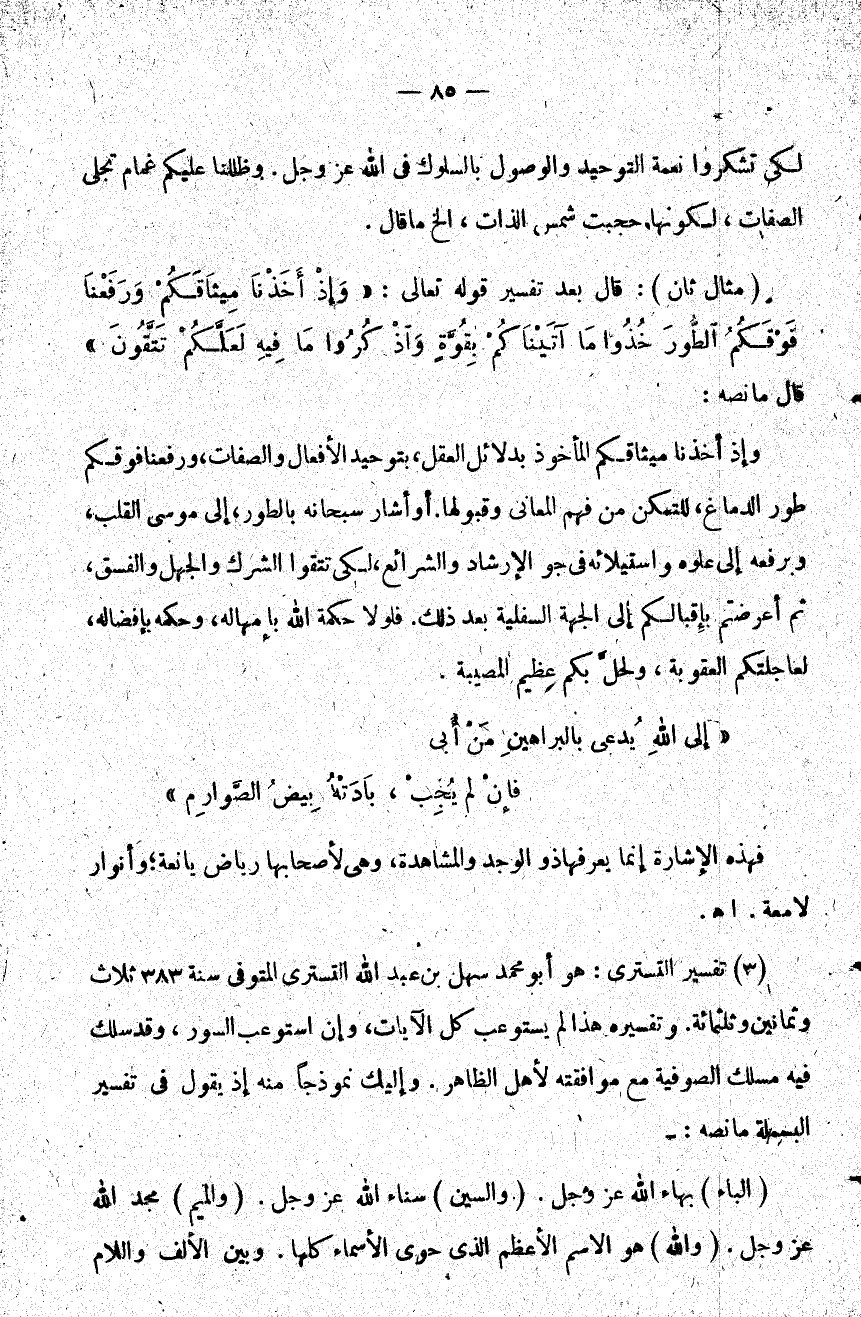 — ٨٥ —
لكى تشكروا نعمة التوحيد والوصول بالسلوك فى الله عز وجل . وظللنا عليكم غمام تجلى
الصفات ، لكونها حجبت شمس الذات ، الخ ماقال .
( مثال ثان ) : قال بعد تفسير قوله تعالى : « وَإِذْ أَخَذْنَا مِيثَاقَكُمْ وَرَفَعْنَا
فَوْقَكُمُ ٱلطُّورَ خُذُوا مَا آتَيْنَاكُمْ بِقُوَّةٍ وَٱذْكُرُوا مَا فِيهِ لَعَلَّكُمْ تَتَّقُونَ »
قال مانصه :
وإذ أخذنا ميثاقكم المأخوذ بدلائل العقل، بتوحيد الأفعال والصفات، ورفعنا فوقكم
طور الدماغ، للتمكن من فهم المعانى وقبولها. أو أشار سبحانه بالطور، إلى موسى القلب،
وبرفعه إلى علوه واستيلائه فى جو الإرشاد والشرائع، لكى تتقوا الشرك والجهل والفسق،
ثم أعرضتم بإقبالكم إلى الجهة السفلية بعد ذلك. فلولا حكمة الله بإمهاله، وحكمه بإفضاله،
لعاجلتكم العقوبة ، ولحلَّ بكم عظيم المصيبة .
« إلى اللهِ يُدعى بالبراهينِ مَنْ أَبى
فإنْ لم يُجِبْ ، بَادَتْهُ بِيضُ الصَّوارِمِ »
فهذه الإشارة إنما يعرفها ذو الوجد والمشاهدة، وهى لأصحابها رياض يانعة؛ وأنوار
لامعة . ا ه .
(٣) تفسير التسترى : هو أبو محمد سهل بن عبد الله التسترى المتوفى سنة ٣٨٣ ثلاث
وثمانين وثلثمائة. وتفسيره هذا لم يستوعب كل الآيات، وإن استوعب السور ، وقد سلك
فيه مسلك الصوفية مع موافقته لأهل الظاهر . وإليك نموذجاً منه إذ يقول فى تفسير
البسملة مانصه : ـ
( الباء ) بهاء الله عز وجل . ( والسين ) سناء الله عز وجل . ( والميم ) مجد الله
عز وجل . ( والله ) هو الاسم الأعظم الذى حوى الأسماء كلها . وبين الألف واللام